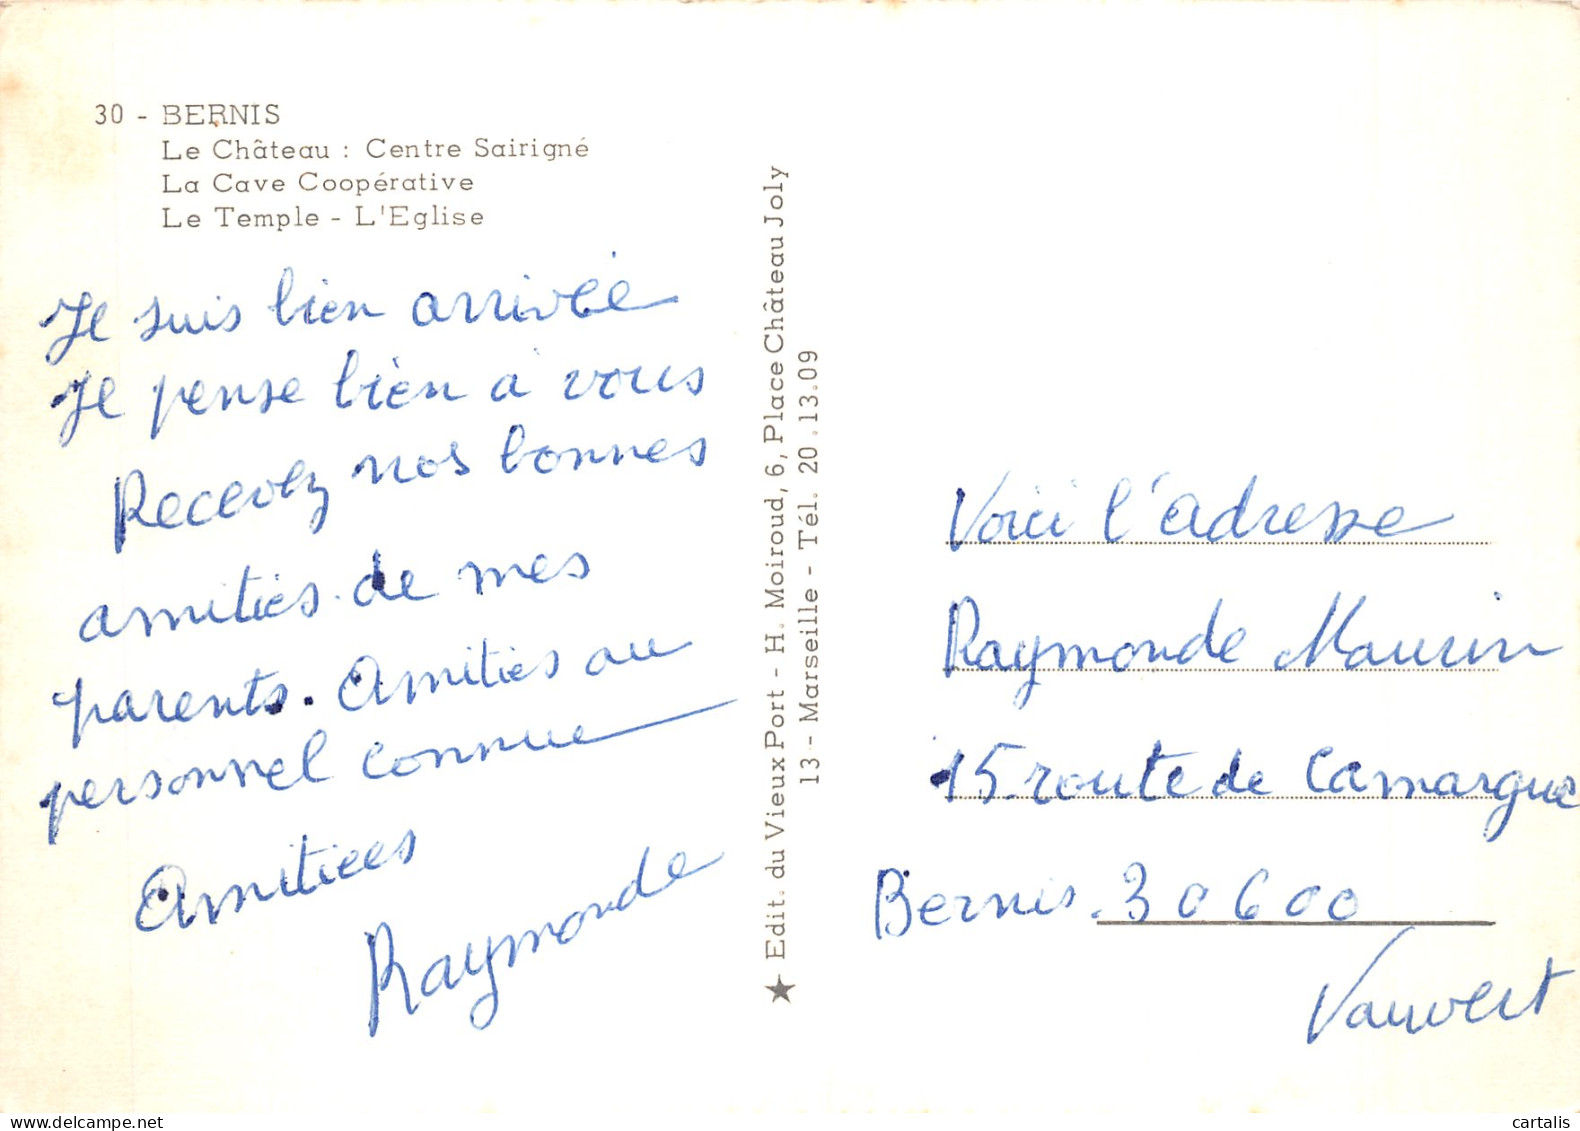 30 - BERNIS
Le Château : Centre Sairigné
La Cave Coopérative
Le Temple - L'Eglise
Je suis bien arrivée
Je pense bien à vous
Recevez nos bonnes
amitiés de mes
parents. Amitiés au
personnel connue
Amitiées
Raymonde
★ Edit. du Vieux Port - H. Moiroud, 6, Place Château Joly
13 - Marseille - Tél. 20.13.09
Voici l'adresse
Raymonde Maurin
15 route de Camargue
Bernis. 30600
Vauvert
cartalis